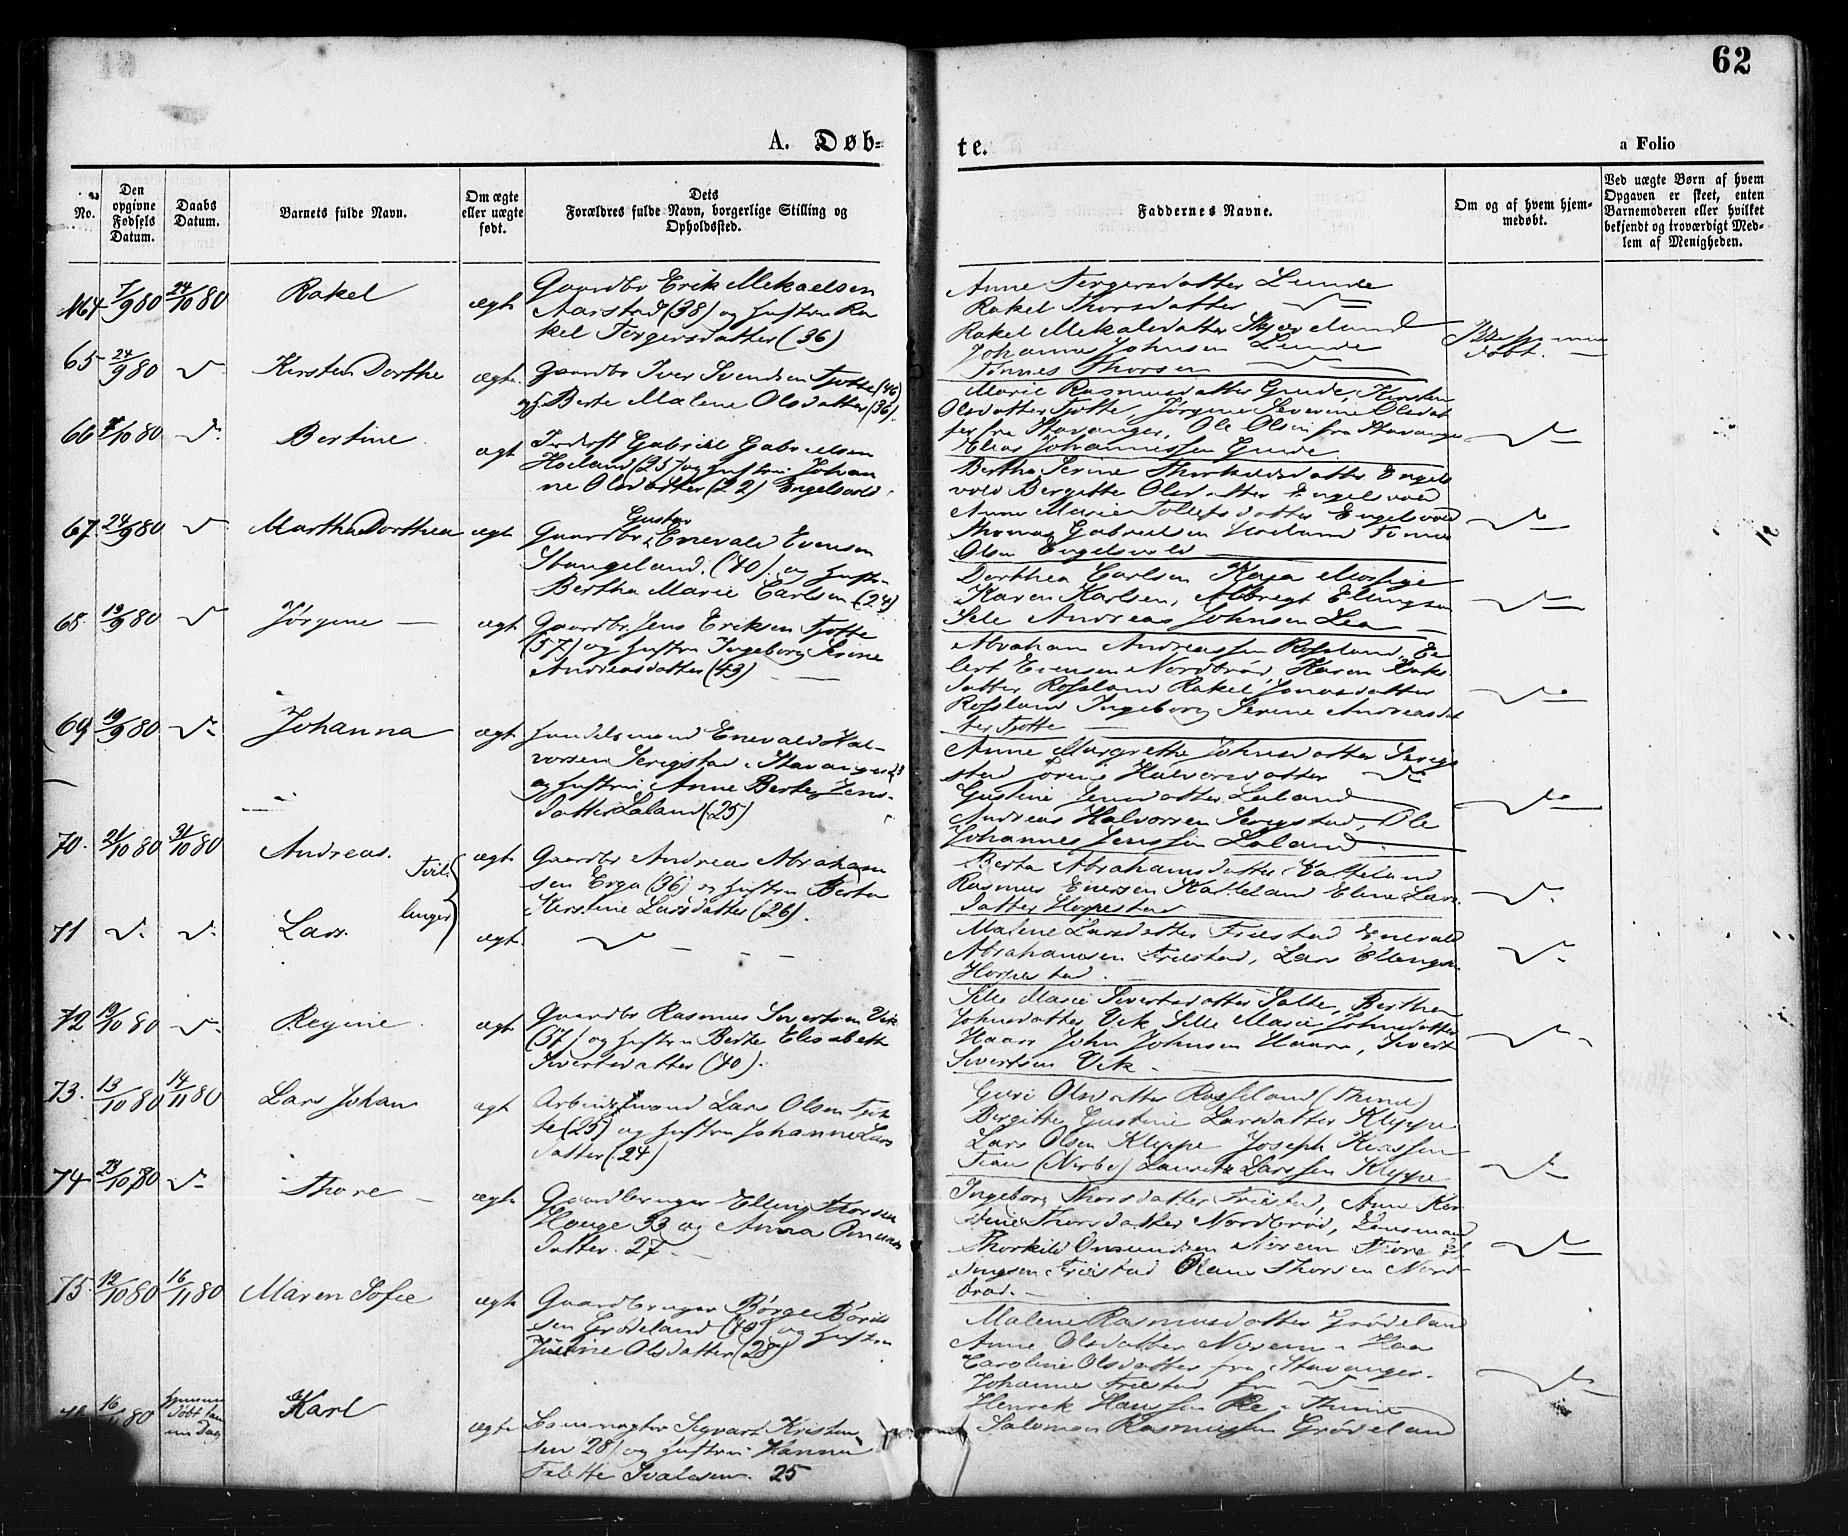 62
A. Døb-
te.
a Folio
No.
Den opgivne Fødsels Datum.
Daabs Datum.
Barnets fulde Navn.
Om ægte eller uægte født.
Dets Forældres fulde Navn, borgerlige Stilling og Opholdssted.
Faddernes Navne.
Om og af hvem hjemmedøbt.
Ved uægte Børn af hvem Opgaven er skeet, enten Barnemoderen eller hvilket bekjendt og troværdigt Medlem af Menigheden.
64 7/9 80 24/10 80 Rakel ægt
Gaardbr Erik Mekaelsen
Aarstad (38) og hustru Ra
kel Tergersdatter (36)
Anne Tergersdatter Lunde
Rakel Thorsdatter
Rakel Mekalsdatter Skjæveland
Johannes Johnsen Lunde
Tønnes Thorsen
65 24/9 80 Kirsten Dorthe ægte
Gaardbr Iver Svendsen Tjøtte (46)
og Berte Malene Olsdatter (36).
Marie Rasmusdatter Grude, Kirsten
Olsdatter Tjøtte, Jørgine Severine Olsdat
ter fra Stavanger, Ole Olsen fra Stavange
Elias Johannessen Grude
66 /10 80 Bertine ægt
Inderst Gabriel Gabrielsen
Høiland (25) og hustru Johan
ne Olsdatter (22) Engelsvold
Bertha Serine Thorkildsdatter Engels
vold Bergitte Olsdatter Engelsvold
Anne Marie Tollefsdatter Engelsvold
Thomas Gabrielsen Høiland Tønnes
Olsen Engelsvold
67 24/9 80 Martha Dorthea ægt
Gustav
Gaardbr Enevald Evensen
Stangeland. (40) og hustr
Bertha Marie Carlsen (24)
Dorthea Carlsen Kaja Mossige
Karen Karlsen, Albregt Ellingsen
Sele Andreas Johnsen Lea
68 19/9 80 Jørgine ægt
Gaardbr. Jens Eriksen Tjøtte
(57) og hustru Ingeborg Serine
Andreasdatter (43)
Abraham Andreassen Rosland, Ee
lert Evensen Nordbrød, Karen
datter Rosland Rakel Jonasdatter
Rosland Ingeborg Serine Andreasdat
ter Tjøtte
69 19/9 80 Johanna ægt
Handelsmand Enevald Hal-
vorsen Serigstad i Stavanger 23
og hustru Anne Berte Jens-
datter Laland (25)
Anne Margrethe Johnsdatter Serig
stad Halvorsdatter
Gustine Jensdatter Laland
Andreas Halvorsen Serigstad, Ole
Johannes Jenssen Laland
70. 21/10 80 31/10 80 Andreas. ægt
Tvil
linger
Gaardbr Andreas Abraham
sen Erga (36) og hustru Berta
Kirstine Larsdatter (26).
Berta Abrahamsdatter Katteland
Rasmus Enersen Katteland Eline Lars
datter Horpestad
71 Lars. ægt
Malene Larsdatter Friestad Enevald
Abrahamsen Friestad, Lars Ellingsen
Horpestad
72 19/10 80 Regine ægt
Gaardbr Rasmus Sivertsen Vik
(37) og hustru Berte Elisabett
Sivertsdatter (40).
Sille Marie Sivertsdatter Salte, Berthe
Johnsdatter Vik Sille Marie Johnsdatter
Haar John Johnsen Haar, Sivert
Sivertsen Vik.
73. 13/10 80 14/11 80 Lars Johan ægt
Arbeidsmand Lars Olsen
(25) og hustru Johanne Lars
datter (24)
Guri Olsdatter Rosseland (Thime)
Bergitte Gustine Larsdatter Kleppe
Lars Olsen Kleppe Joseph
(Nerbø) Lauritz Larssen Kleppe
74 23/10 80 Thore ægt
Gaardbruger Elling Thorsen
Hauge 33 og Anna Omuns
datter. 27
Ingeborg Thorsdatter Friestad, Anne Kir
stine Thorsdatter Nordbrød, Lensmand
Thorkild Omundsen Norem Tore El
lingsen Friestad Thorsen Nord
brød.
75. 12/10 80 16/11 80 Maren Sofie ægt
Gaardbruger Børge Børre
sen Grødeland (40) og hustru
Olsdatter (28)
Malene Rasmusdatter Grødeland
Anne Olsdatter Norem Haa
Caroline Olsdatter fra Stavanger.
Johanne Friestad fra
Henrik Hanssen Re Thime
Salomon Rasmussen Grødeland
16/11 80 hjemme
døbt sam
me Dag
Karl ægte
Sigvart Kristen
sen 28) og hustru Hanne
Svalesen. 25